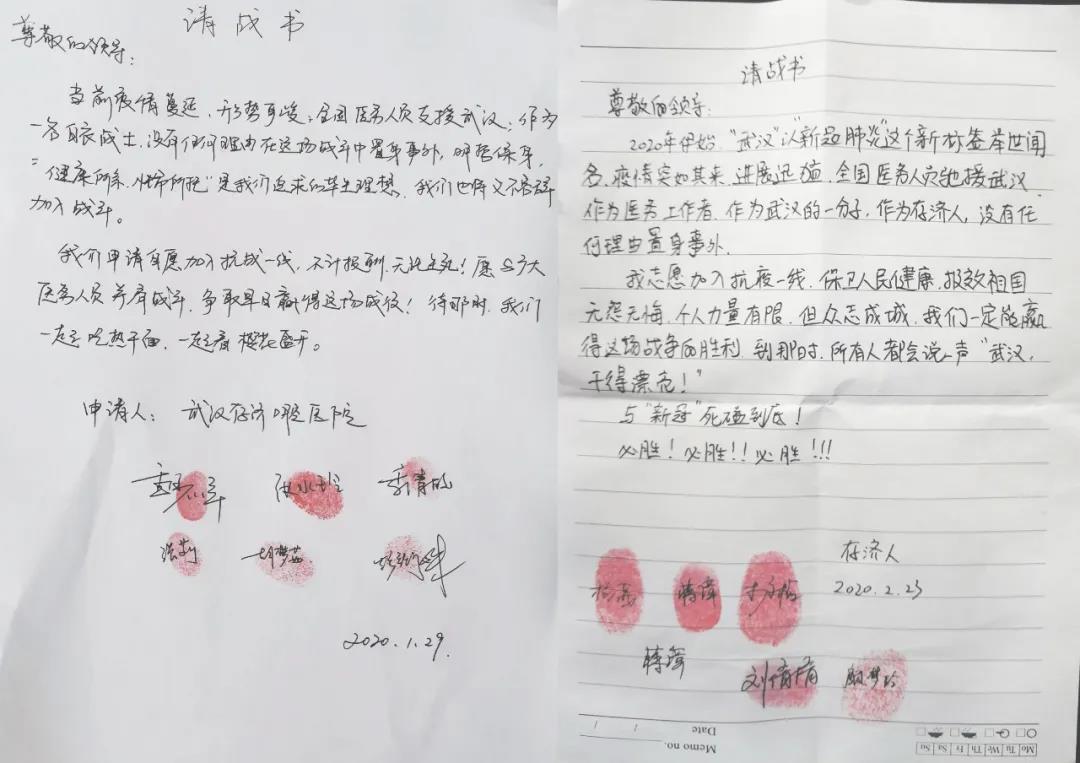 请战书
尊敬的领导：
当前疫情蔓延，形势严峻，全国医务人员支援武汉；作为
一名白衣战士，没有任何理由在这场战斗中置身事外，明哲保身，
"健康所系，性命所托"是我们追求的毕生理想，我们也将义不容辞
加入战斗。
我们申请自愿加入抗战一线，不计报酬，无论生死！愿与广大
医务人员并肩战斗，争取早日赢得这场战役！待那时，我们
一起吃热干面，一起看樱花盛开。
申请人：武汉存济口腔医院
胡梦茹
2020.1.29.
请战书
尊敬的领导：
2020年伊始，"武汉"以"新冠肺炎"这个新标签举世闻
名，疫情突如其来，进展迅猛，全国医务人员驰援武汉
作为医务工作者，作为武汉的一分子，作为存济人，没有任
何理由置身事外。
我志愿加入抗疫一线，保卫人民健康，报效祖国
无怨无悔，个人力量有限，但众志成城，我们一定能赢
得这场战争的胜利，到那时，所有人都会说一声"武汉，
干得漂亮！"
与"新冠"死磕到底！
必胜！必胜！！必胜！！！
存济人
2020.2.23
韩露
刘倩倩
Memo no.
Date / /
Mo Tu We Th Fr Sa Su